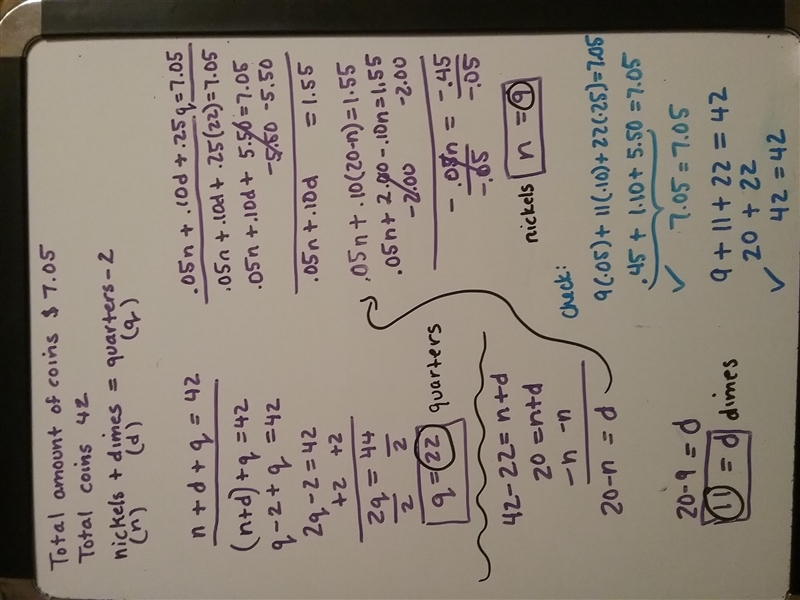 Total amount of coins $7.05
Total coins 42
nickels + dimes = quarters - 2
(n) (d) (q)
n + d + q = 42
(n+d) + q = 42
q - 2 + q = 42
2q - 2 = 42
+2 +2
2q = 44
2 2
q = 22 quarters
42 - 22 = n+d
20 = n+d
-n -n
20 - n = d
20 - 9 = d
11 = d dimes
.05n + .10d + .25q = 7.05
.05n + .10d + .25(22) = 7.05
.05n + .10d + 5.50 = 7.05
-5.50 -5.50
.05n + .10d = 1.55
.05n + .10(20-n) = 1.55
.05n + 2.00 - .10n = 1.55
-2.00 -2.00
-.05n = -.45
-.05 -.05
nickels n = 9
check:
9(.05) + 11(.10) + 22(.25) = 7.05
.45 + 1.10 + 5.50 = 7.05
✓ 7.05 = 7.05
9 + 11 + 22 = 42
20 + 22
✓ 42 = 42